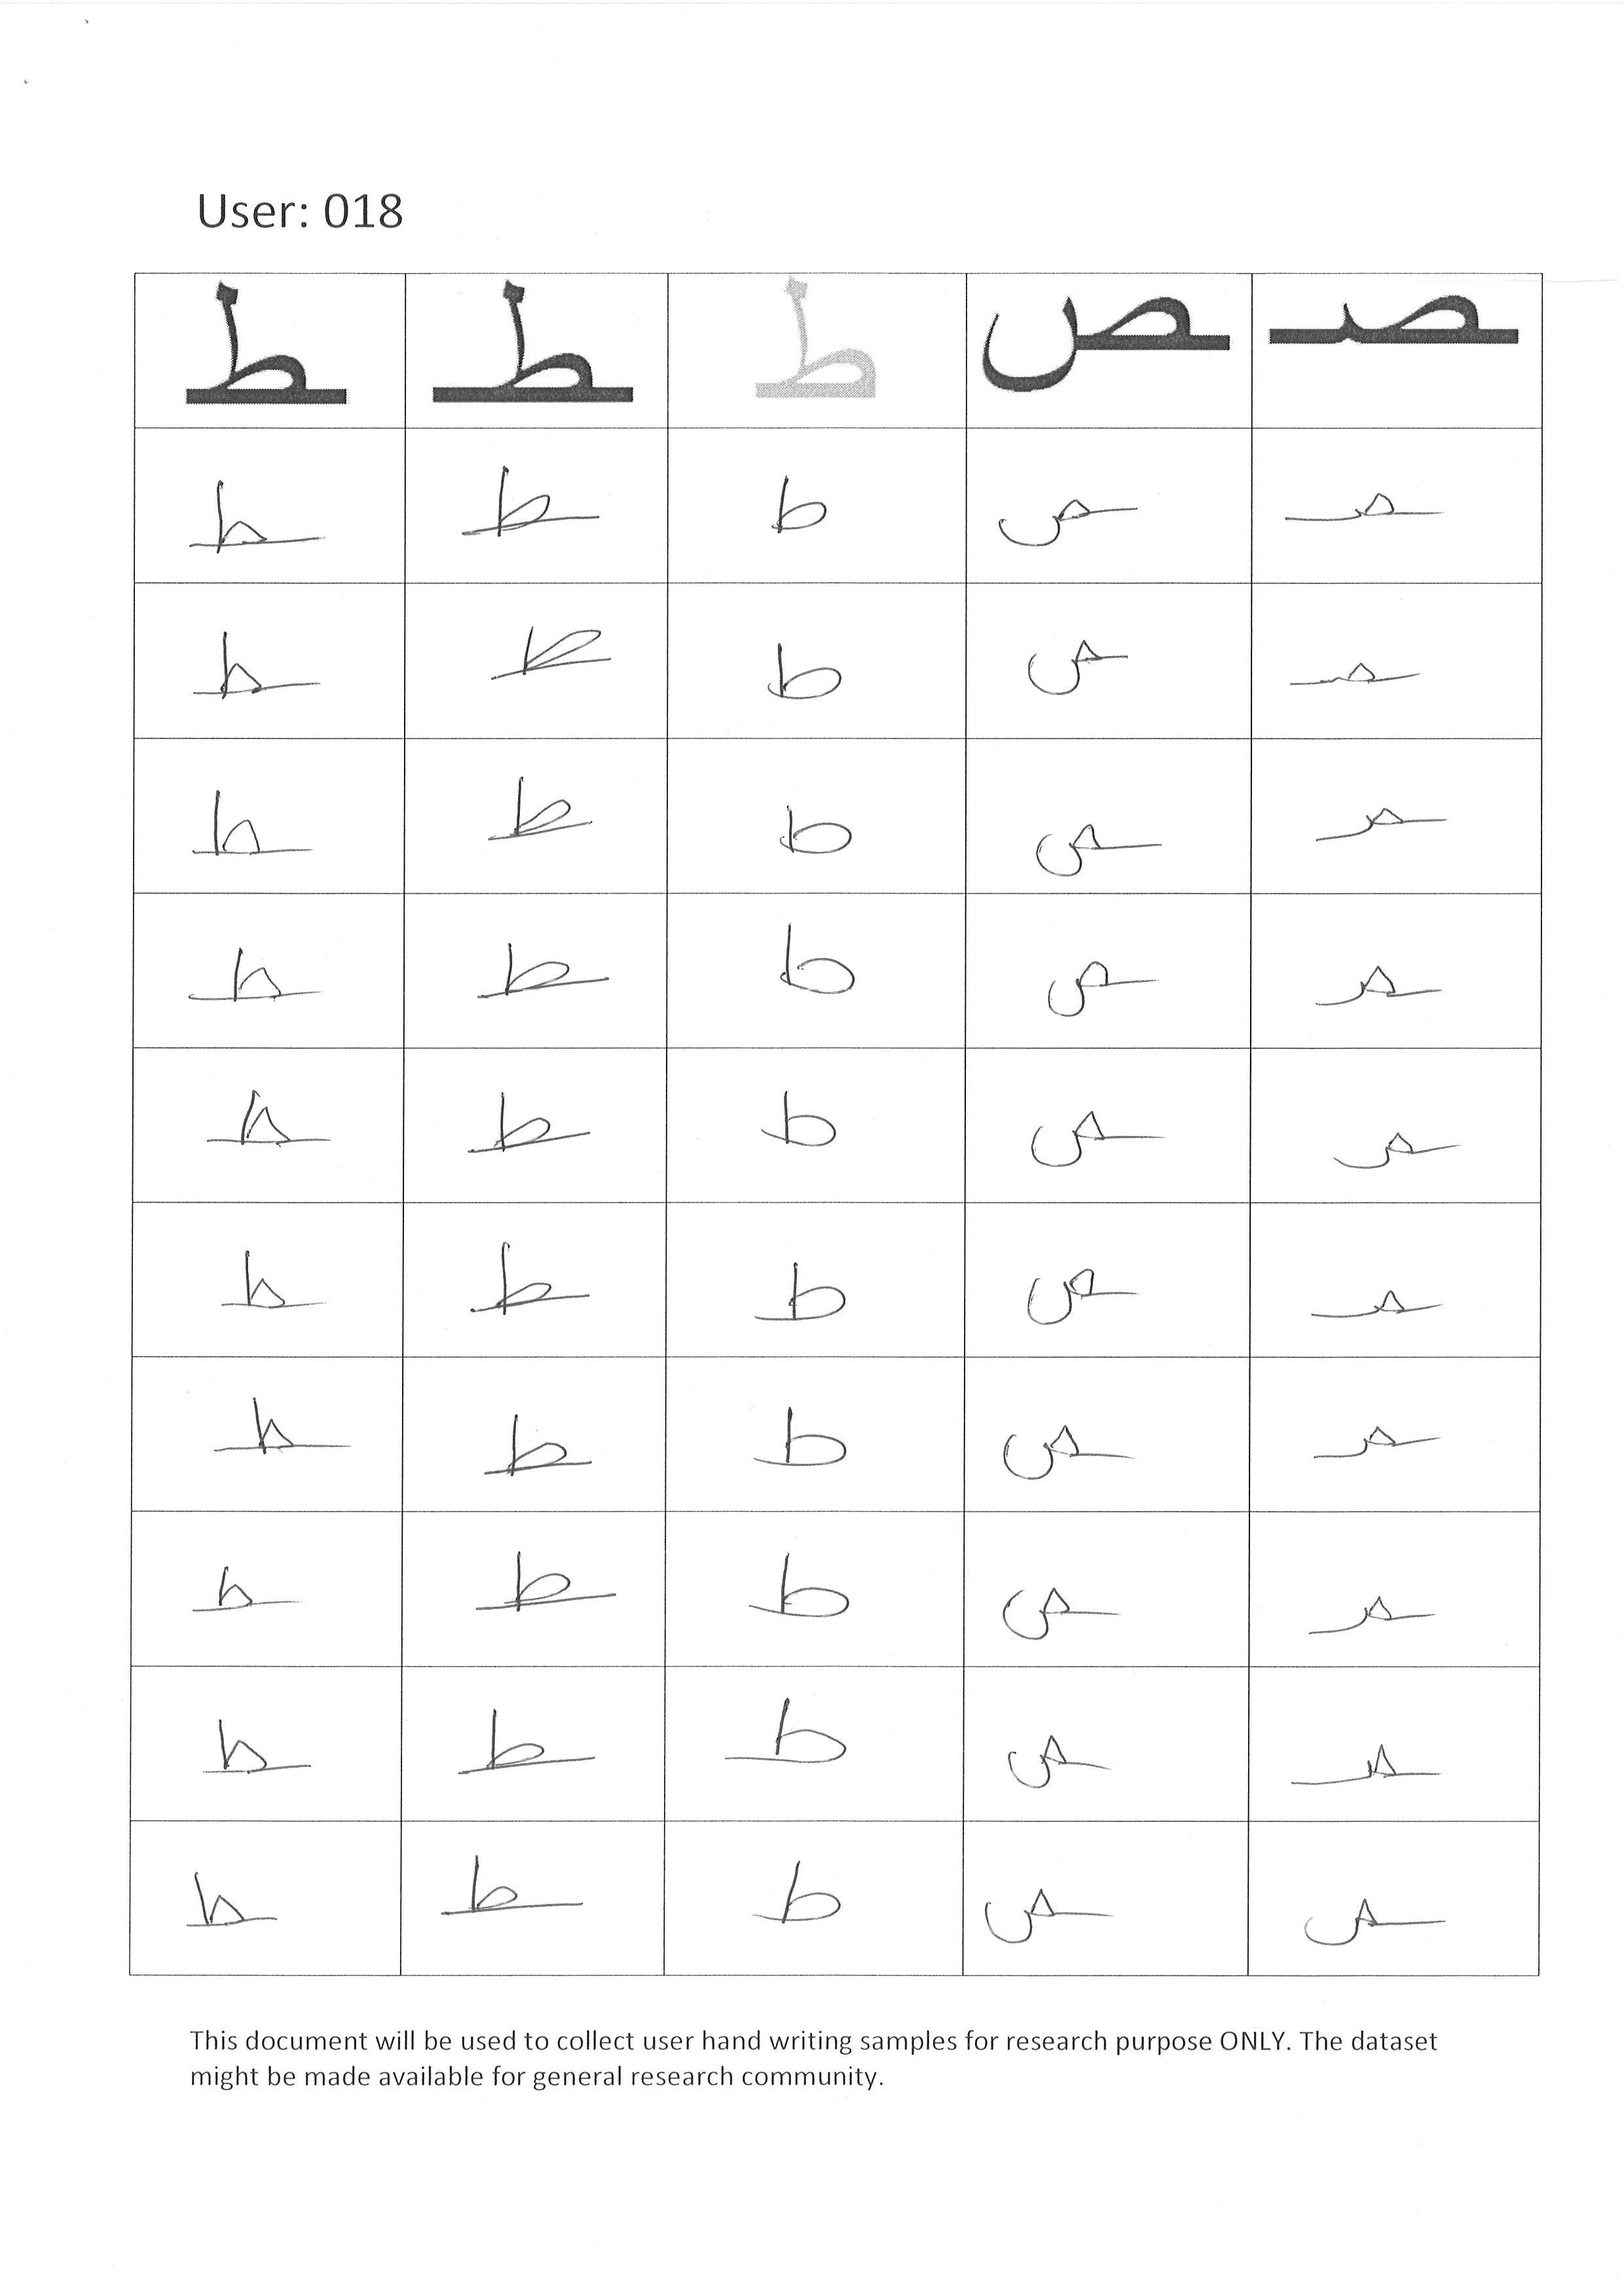 User: 018
ـصـ ـص طـ ـطـ ـط
ـصـ ـص ط ـطـ ـطـ
ـصـ ـص ط ـطـ ـطـ
ـصـ ـص ط ـطـ ـطـ
ـصـ ـص ط ـطـ ـطـ
ـص ـص طـ ـطـ ـطـ
ـصـ ـص طـ ـطـ ـطـ
ـصـ ـص طـ ـطـ ـطـ
ـصـ ـص طـ ـطـ ـطـ
ـصـ ـص طـ ـطـ ـطـ
ـص ـص طـ ـطـ ـطـ
This document will be used to collect user hand writing samples for research purpose ONLY. The dataset
might be made available for general research community.